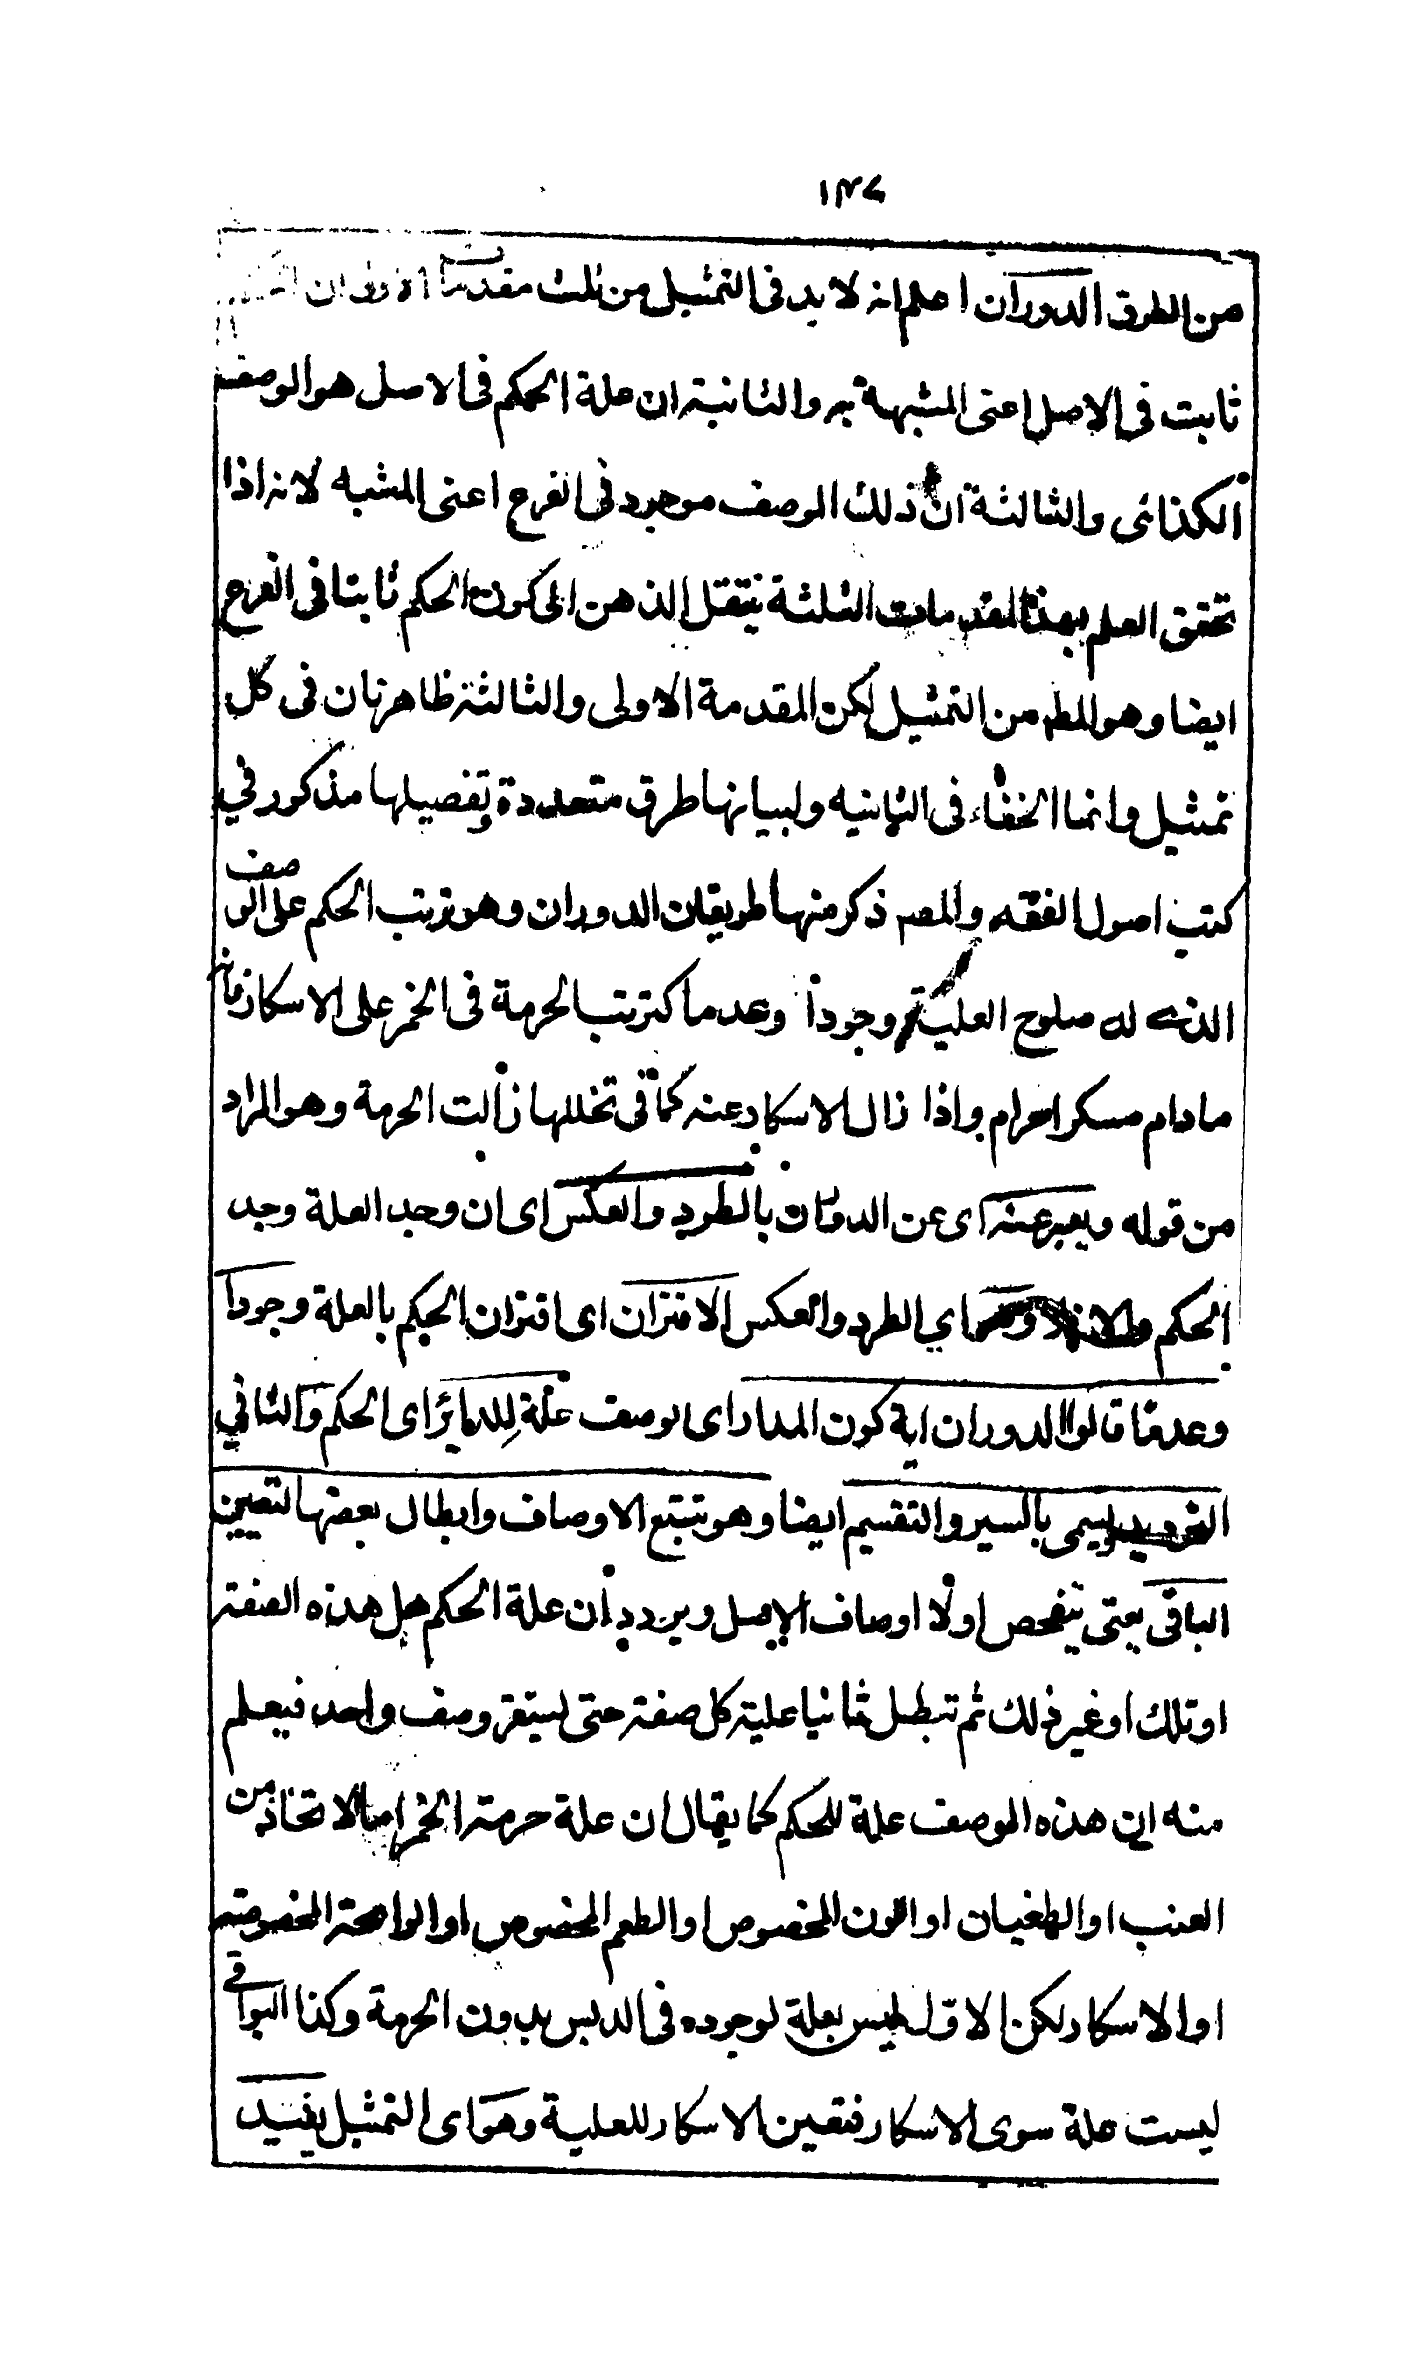 ١٣٧
من الطرق الدوران اعلم انه لا بد فى التمثيل من ثلث مقدمات الاولى ان
ثابت فى الاصل اعنى المشبهة به والثانية ان علة الحكم فى الاصل هو الوصف
الكذائى والثالثة ان ذلك الوصف موجود فى الفرع اعنى المشبه لانه اذا
تحقق العلم بهذا المقدمات الثلثة ينتقل الذهن الى كون الحكم ثابتا فى الفرع
ايضا وهو المط من التمثيل لكن المقدمة الاولى والثالثة ظاهرتان فى كل
تمثيل وانما الخفاء فى الثانيه ولبيانها طرق متعددة وتفصيلها مذكور في
كتب اصول الفقه والمصـ ذكر منها طريقان الدوران وهو ترتب الحكم على الوصف
الذى له صلوح العلية وجوداً وعدما كترتب الحرمة فى الخمر على الاسكار فانه
مادام مسكرا حرام واذا زال الاسكار عنه كما فى تخللها زالت الحرمة وهو المراد
من قوله ويعبر عنه اى عن الدوران بالطرد والعكس اى ان وجد العلة وجد
الحكم اي الطرد والعكس الاقتران اى اقتران الحكم بالعلة وجوداً
وعدمًا قالوا الدوران اية كون المدار اى الوصف علة للدائر اى الحكم والثاني
الترديد ويسمى بالسير والتقسيم ايضا وهو تتبع الاوصاف وابطال بعضها لتعيين
الباقى يعنى يتفحص اولا اوصاف الاصل ويردد ان علة الحكم هل هذه الصفة
او تلك او غير ذلك ثم تبطل ثانيا علية كل صفة حتى يستقر وصف واحد فيعلم
منه ان هذه الوصف علة للحكم كما يقال ان علة حرمة الخمر اما الاتخاذ من
العنب او الطغيان او اللون المخصوص او الطعم المخصوص او الواحة المخصوصة
او الاسكار لكن الاول ليس بعلة لوجوده فى الدبس بدون الحرمة وكذا البواقى
ليست علة سوى الاسكار فتعين الاسكار للعلية وهو اى التمثيل يفيد